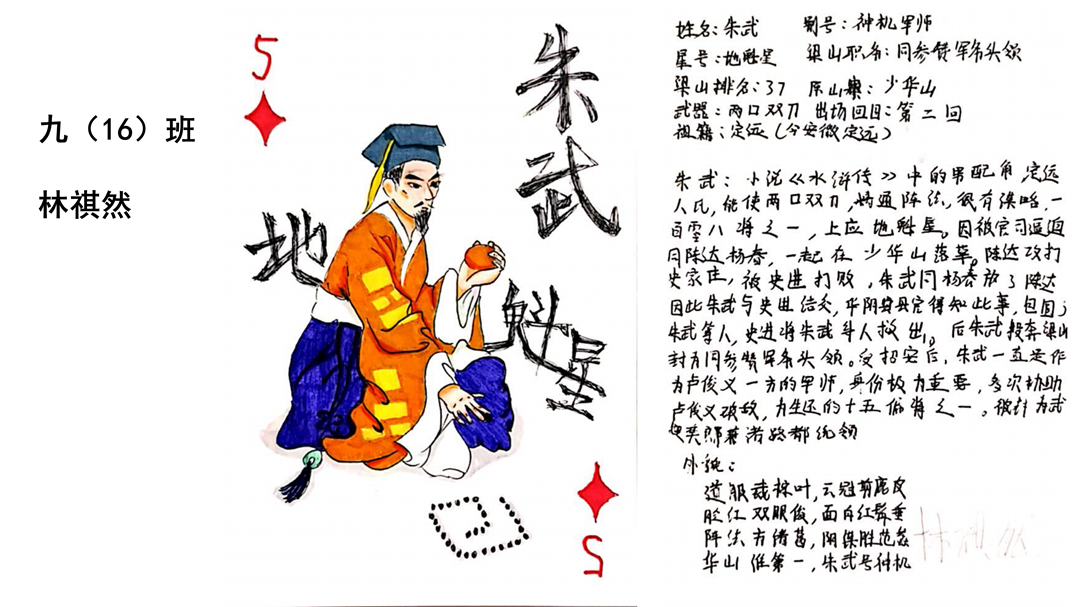 九（16）班
林祺然
5
朱武
地魁星
5
姓名：朱武 别号：神机军师
星号：地魁星 梁山职务：同参赞军务头领
梁山排名：37 原山寨：少华山
武器：两口双刀 出场回目：第二回
祖籍：定远（今安徽定远）
朱武：小说《水浒传》中的男配角，定远
人氏，能使两口双刀，精通阵法，极有谋略，一
百零八将之一，上应地魁星。因被官司逼迫
同陈达杨春，一起在少华山落草。陈达攻打
史家庄，被史进打败，朱武同杨春放了陈达
因此朱武与史进结交，华阴县县官得知此事，包围了
朱武等人，史进将朱武等人救出。后朱武投奔梁山
封为同参赞军务头领。受招安后，朱武一直是作
为卢俊义一方的军师，身份极为重要，多次协助
卢俊义破敌，为生还的十五偏将之一。被封为武
奕郎兼诸路都统领
外貌：
道服裁棕叶，云冠剪鹿皮
脸红双眼俊，面白红髯垂
阵法方诸葛，阴谋胜范蠡
华山谁第一，朱武号神机
林祺然